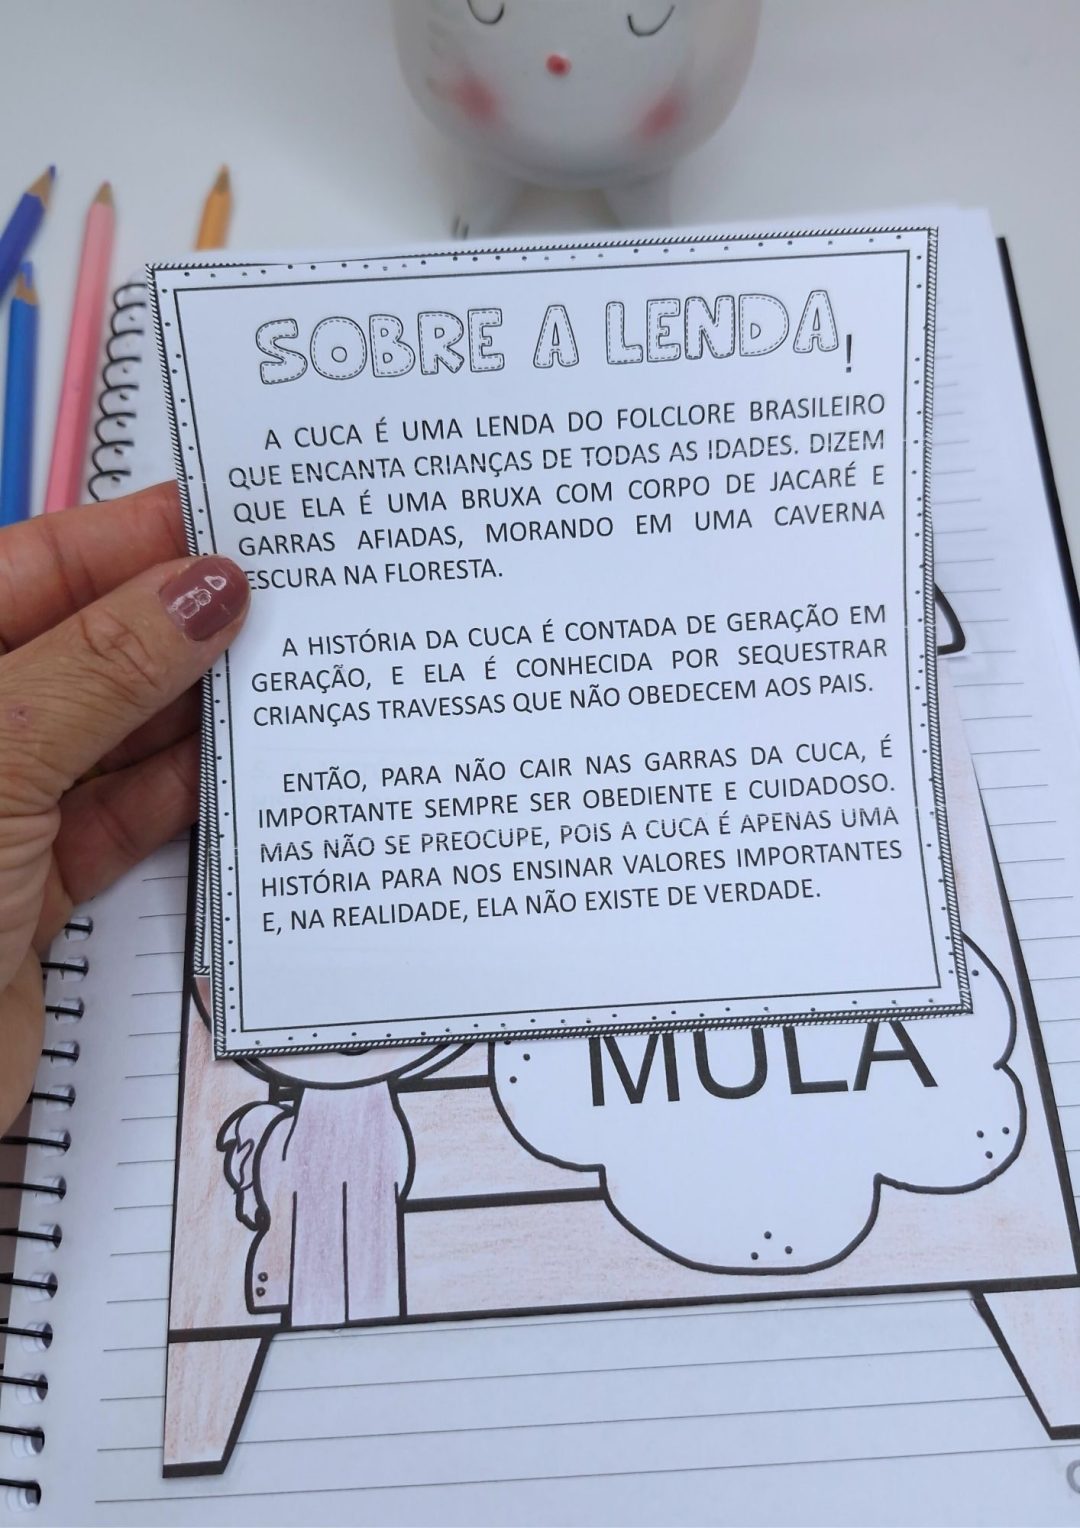 SOBRE A LENDA!
A CUCA É UMA LENDA DO FOLCLORE BRASILEIRO
QUE ENCANTA CRIANÇAS DE TODAS AS IDADES. DIZEM
QUE ELA É UMA BRUXA COM CORPO DE JACARÉ E
GARRAS AFIADAS, MORANDO EM UMA CAVERNA
ESCURA NA FLORESTA.
A HISTÓRIA DA CUCA É CONTADA DE GERAÇÃO EM
GERAÇÃO, E ELA É CONHECIDA POR SEQUESTRAR
CRIANÇAS TRAVESSAS QUE NÃO OBEDECEM AOS PAIS.
ENTÃO, PARA NÃO CAIR NAS GARRAS DA CUCA, É
IMPORTANTE SEMPRE SER OBEDIENTE E CUIDADOSO.
MAS NÃO SE PREOCUPE, POIS A CUCA É APENAS UMA
HISTÓRIA PARA NOS ENSINAR VALORES IMPORTANTES
E, NA REALIDADE, ELA NÃO EXISTE DE VERDADE.
MULA